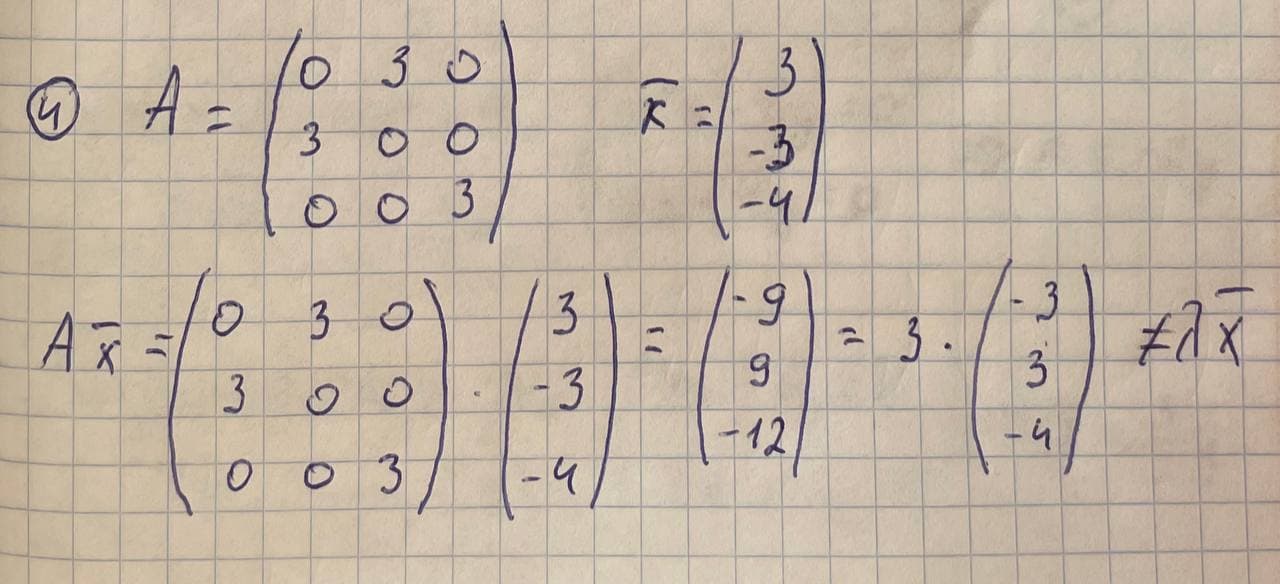 ④ A = ( 0 3 0 ; 3 0 0 ; 0 0 3 ) x̄ = ( 3 ; -3 ; -4 )
A x̄ = ( 0 3 0 ; 3 0 0 ; 0 0 3 ) · ( 3 ; -3 ; -4 ) = ( -9 ; 9 ; -12 ) = 3 · ( -3 ; 3 ; -4 ) ≠ λ x̄